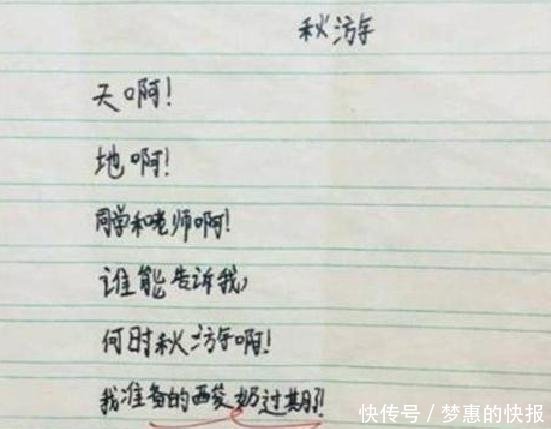 秋游
天啊!
地啊!
同学和老师啊!
谁能告诉我,
何时秋游啊!
我准备的酸奶过期了!
快传号/梦惠的快报